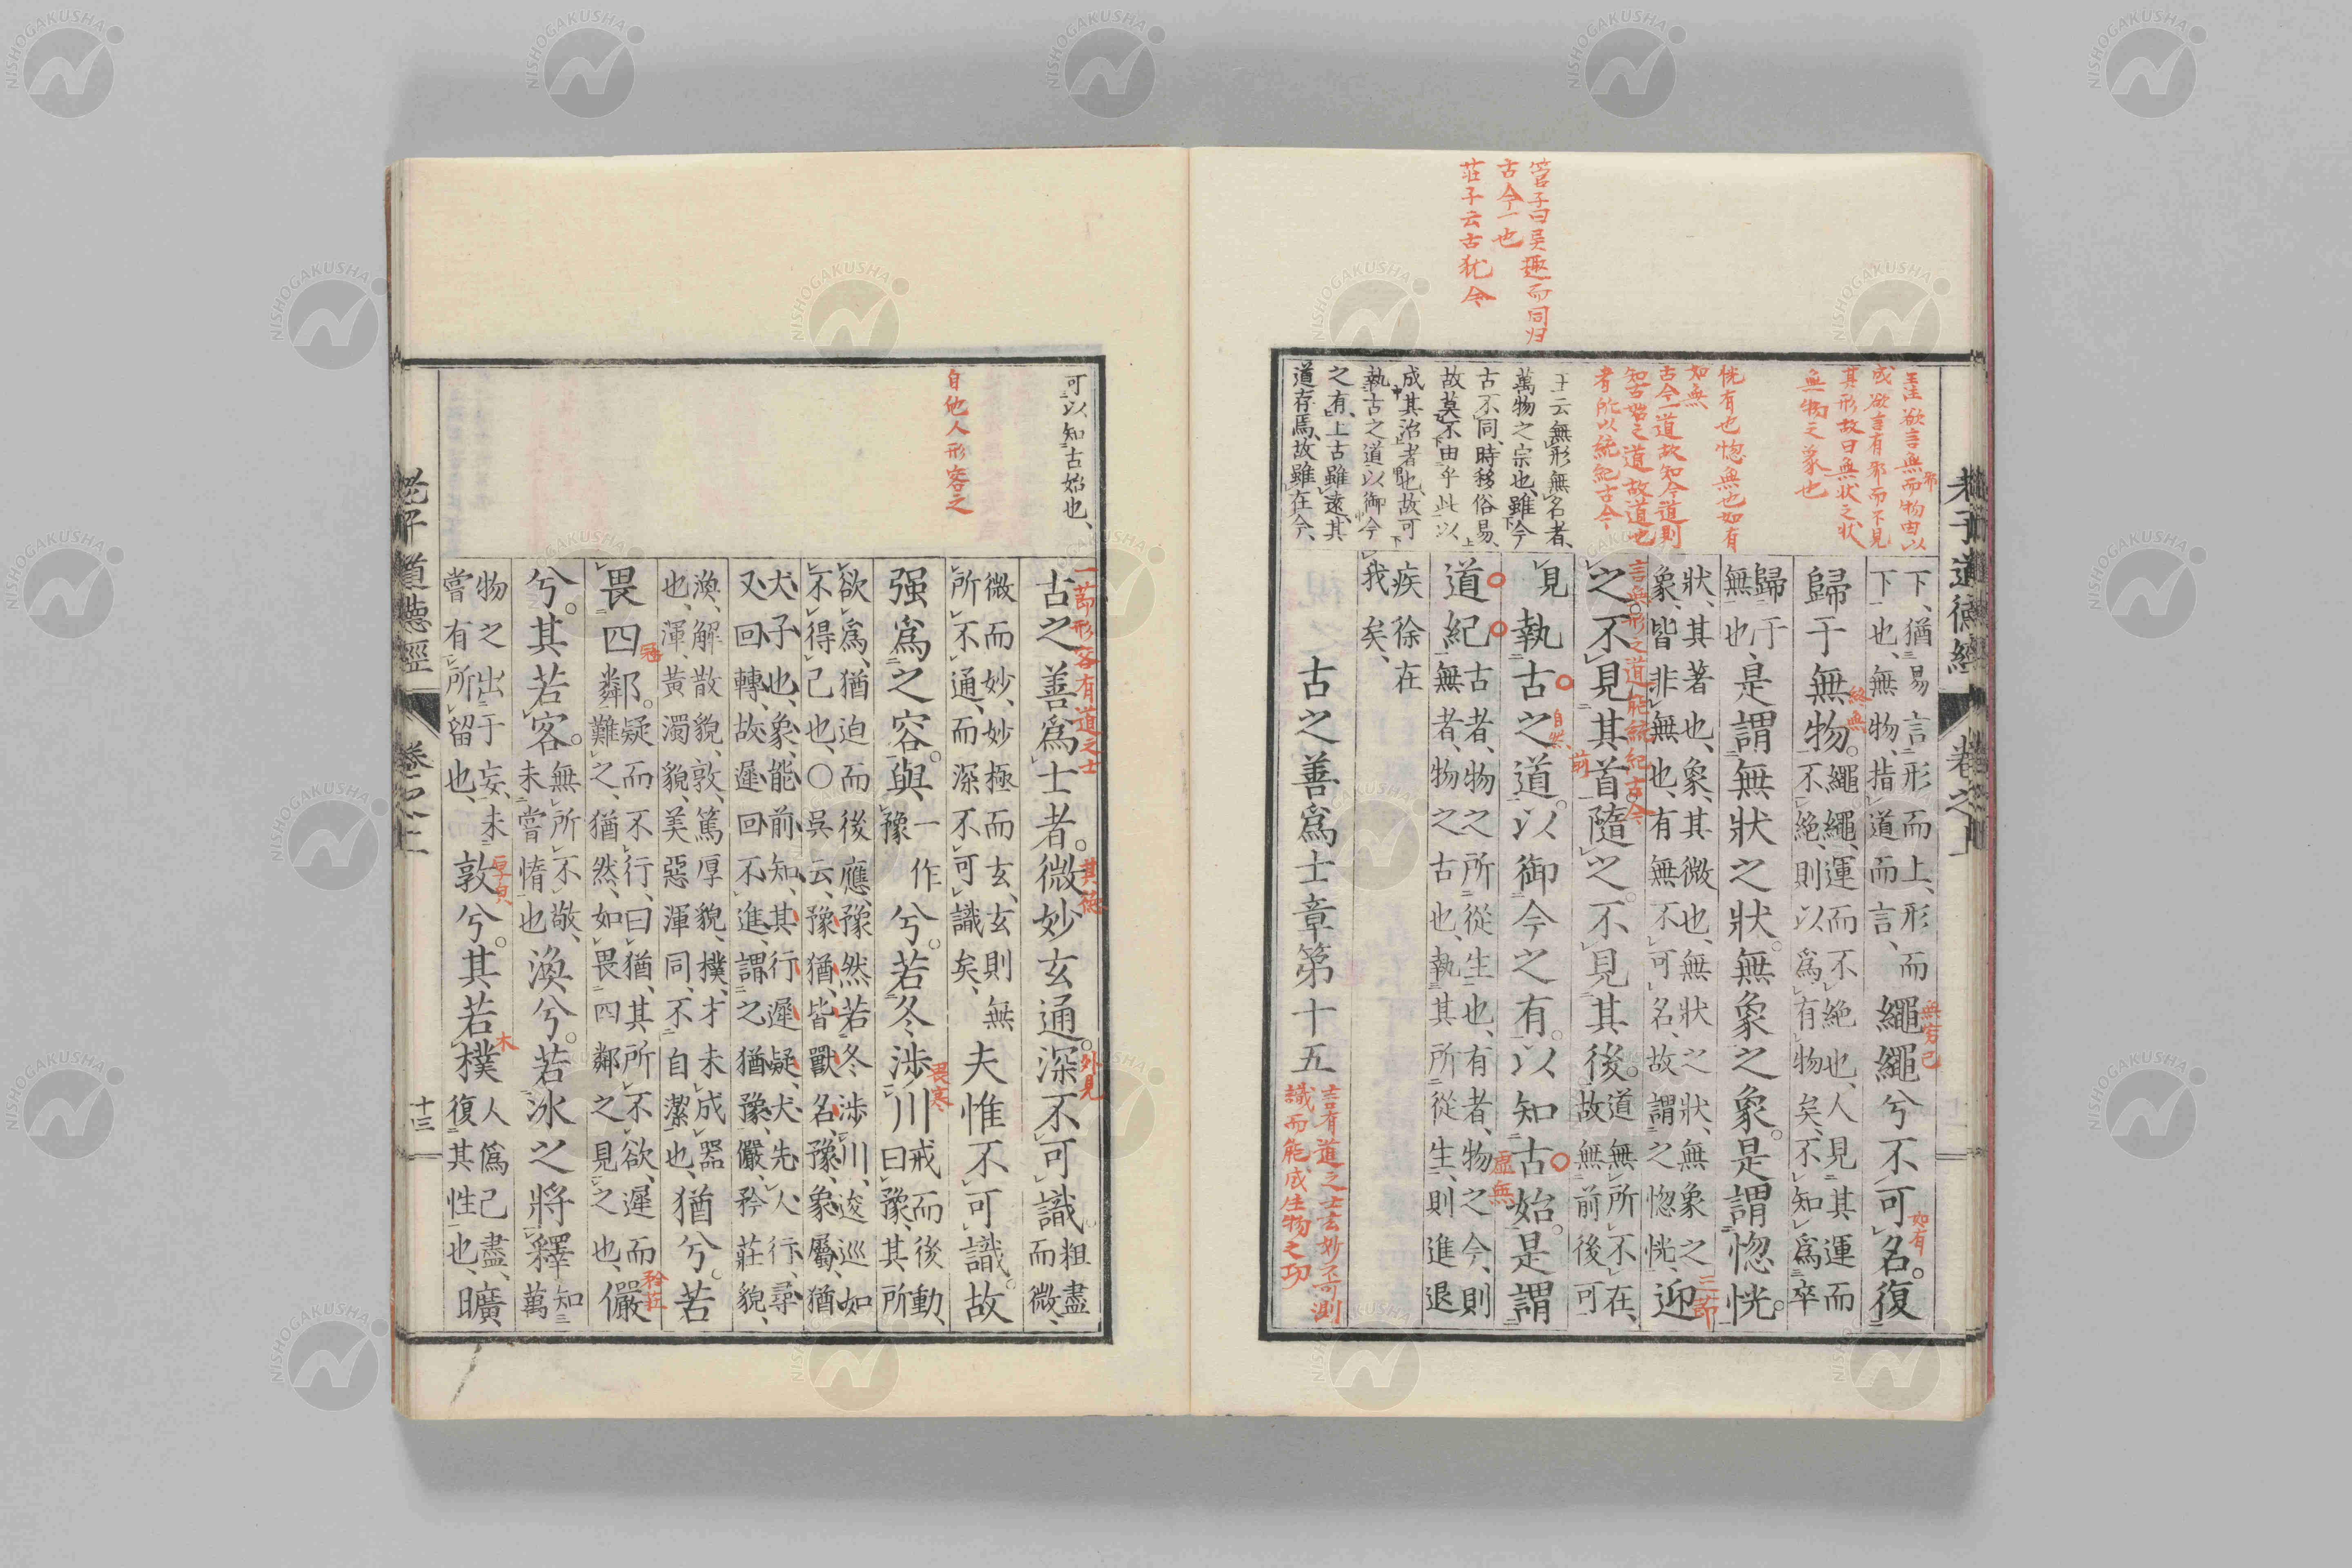 管子曰異趣而同归
古今一也
莊子云古犹今
王注欲言無邪而物由以
成欲言有邪而不見
其形故曰無狀之狀
無物之象也
恍有也惚無也如有
如無
古今一道故知今道則
知古始之道故道也
者所以統紀古今
王云無形無名者、
萬物之宗也、雖今
古不同、時移俗易、
故莫不由乎此以
成其治者也、故可
執古之道以御今
之有、上古雖遠、其
道存焉、故雖在今、
老子道德經
卷之上
下、猶易言形而上、形而
下也、無物、指道而言、
繩繩兮不可名。復
無窮已
如有
歸于無物。
終無
繩繩、運而不絕也、人見其運而
不絕、則以爲有物矣、不知爲卒
歸于
無也、
是謂無狀之狀。無象之象。是謂惚恍。
狀、其著也、象、其微也、無狀之狀、無象之
象、皆非無也、有無不可名、故謂之惚恍、
迎
三節
言無形之道能統紀古今
之。不見其首隨之。不見其後。
前
道無所不在、
故無前後可
見
執古之道。以御今之有。以知古始。是謂
自然
虛無
道紀
古者、物之所從生也、有者、物之今、則
無者、物之古也、執其所從生、則進退
疾徐在
我矣、
古之善爲士章第十五
言有道之士玄妙不可測
識而能成生物之功
可以知古始也、
自他人形容之
一節形容有道之士
古之善爲士者。微妙玄通。深不可識。
其德
外見
粗盡
而微、
微而妙、妙極而玄、玄則無
所不通、而深不可識矣、
夫惟不可識。故
强爲之容。與
一作
豫
兮。若冬涉川
畏寒
戒而後動、
曰豫、其所
欲爲、猶迫而後應、豫然若冬涉川、逡巡如
不得已也、○吳云、豫猶、皆獸名、豫、象屬、猶
犬子也、象、能前知、其行遲疑、犬先人行、尋
又回轉、故遲回不進、謂之猶豫、儼、矜莊貌、
渙、解散貌、敦、篤厚貌、樸、才未成器
也、渾、黃濁貌、美惡渾同、不自潔也、
猶兮。若
畏四鄰。
疑而不行、曰猶、其所不欲、遲而
難之、猶然、如畏四鄰之見之也、
儼
矜莊
兮。其若客。
無所不敬、
未嘗惰也
渙兮。若冰之將釋
知
萬
物之出于妄、未
嘗有所留也、
敦兮。其若樸
厚皃
木
人僞已盡、
復其性也、
曠
老子道德經
卷之上
十三